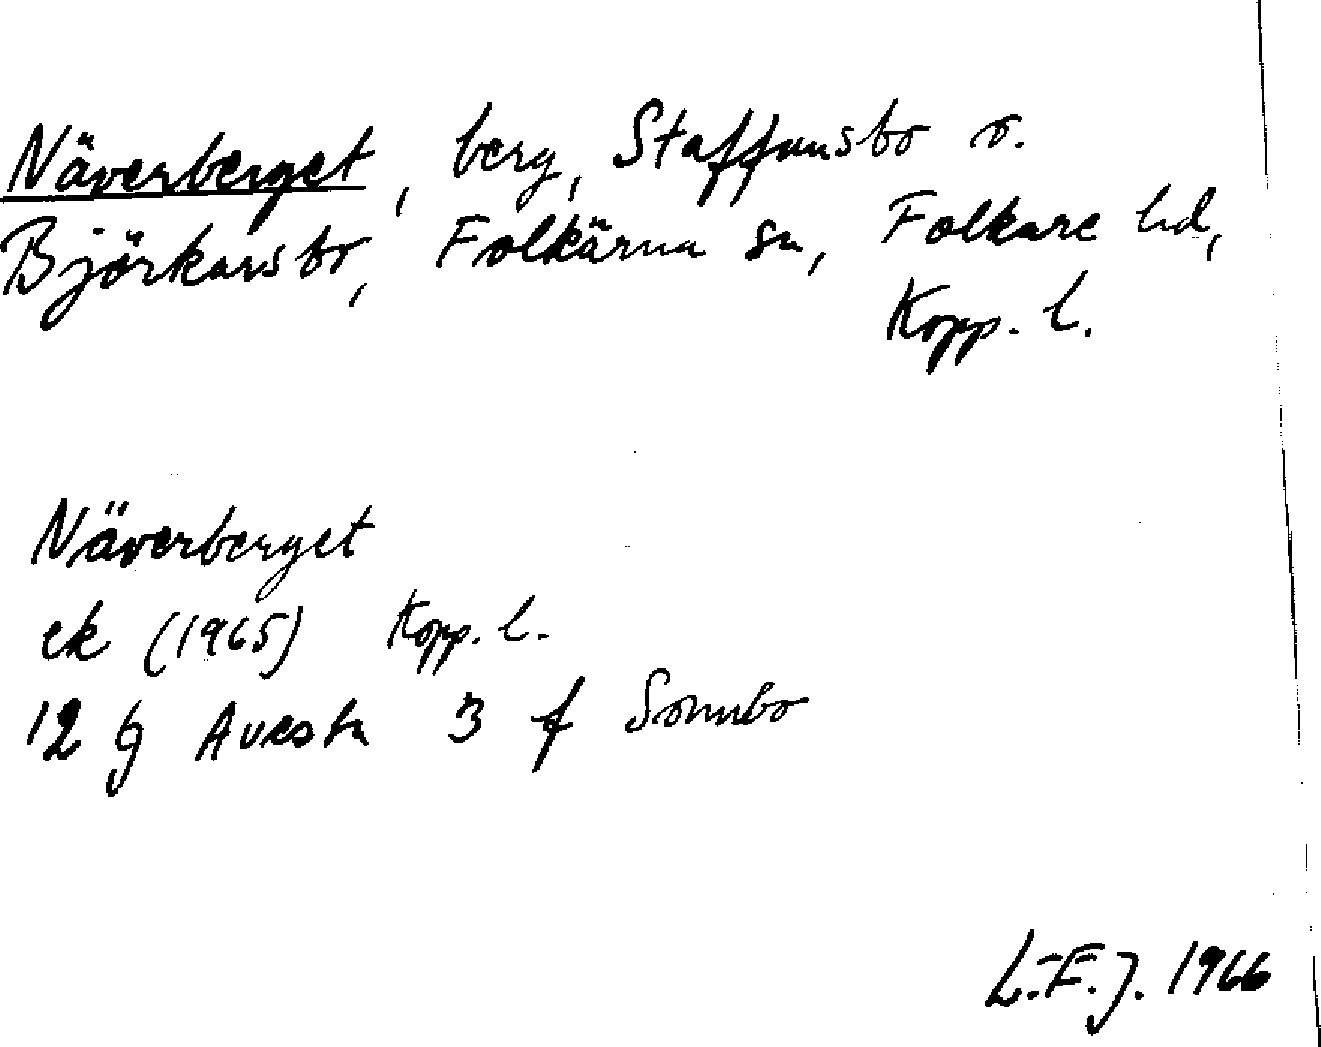 Näverberget, berg, Staffansbo o.
Björkarsbo, Folkärna sn, Folkare hd,
Kopp. l.
Näverberget
ek (1965) Kopp. l.
12 G Avesta 3 f Sonnbo
L.-E. J. 1966